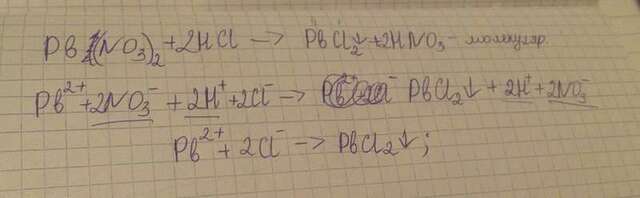 Pb(NO₃)₂+2HCl → PbCl₂↓+2HNO₃ - молекуляр.
Pb²⁺+2NO₃⁻+2H⁺+2Cl⁻ → PbCl₂↓+2H⁺+2NO₃⁻
Pb²⁺+2Cl⁻ → PbCl₂↓;